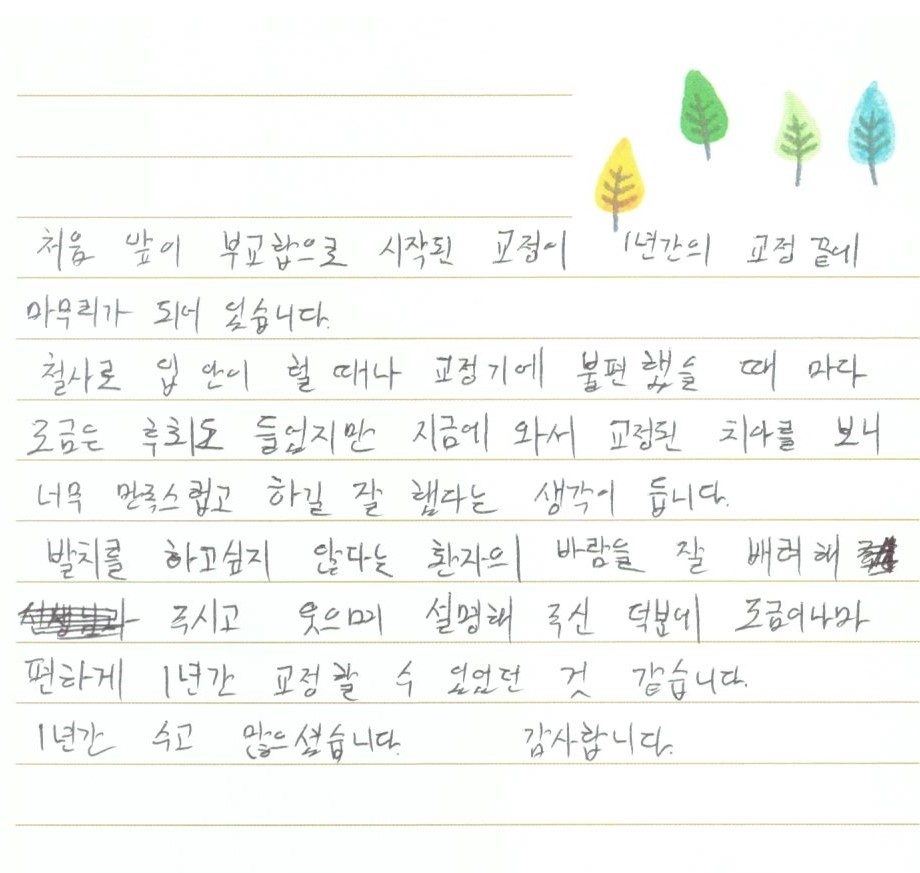 처음 앞이 부교합으로 시작된 교정이 1년간의 교정 끝에
마무리가 되어 있습니다.
철사로 입 안이 헐 때나 교정기에 불편했을 때 마다
조금은 후회도 들었지만 지금에 와서 교정된 치아를 보니
너무 만족스럽고 하길 잘 했다는 생각이 듭니다.
발치를 하고싶지 않다는 환자의 바람을 잘 배려해
주시고 웃으며 설명해 주신 덕분에 조금이나마
편하게 1년간 교정할 수 있었던 것 같습니다.
1년간 수고 많으셨습니다. 감사합니다.